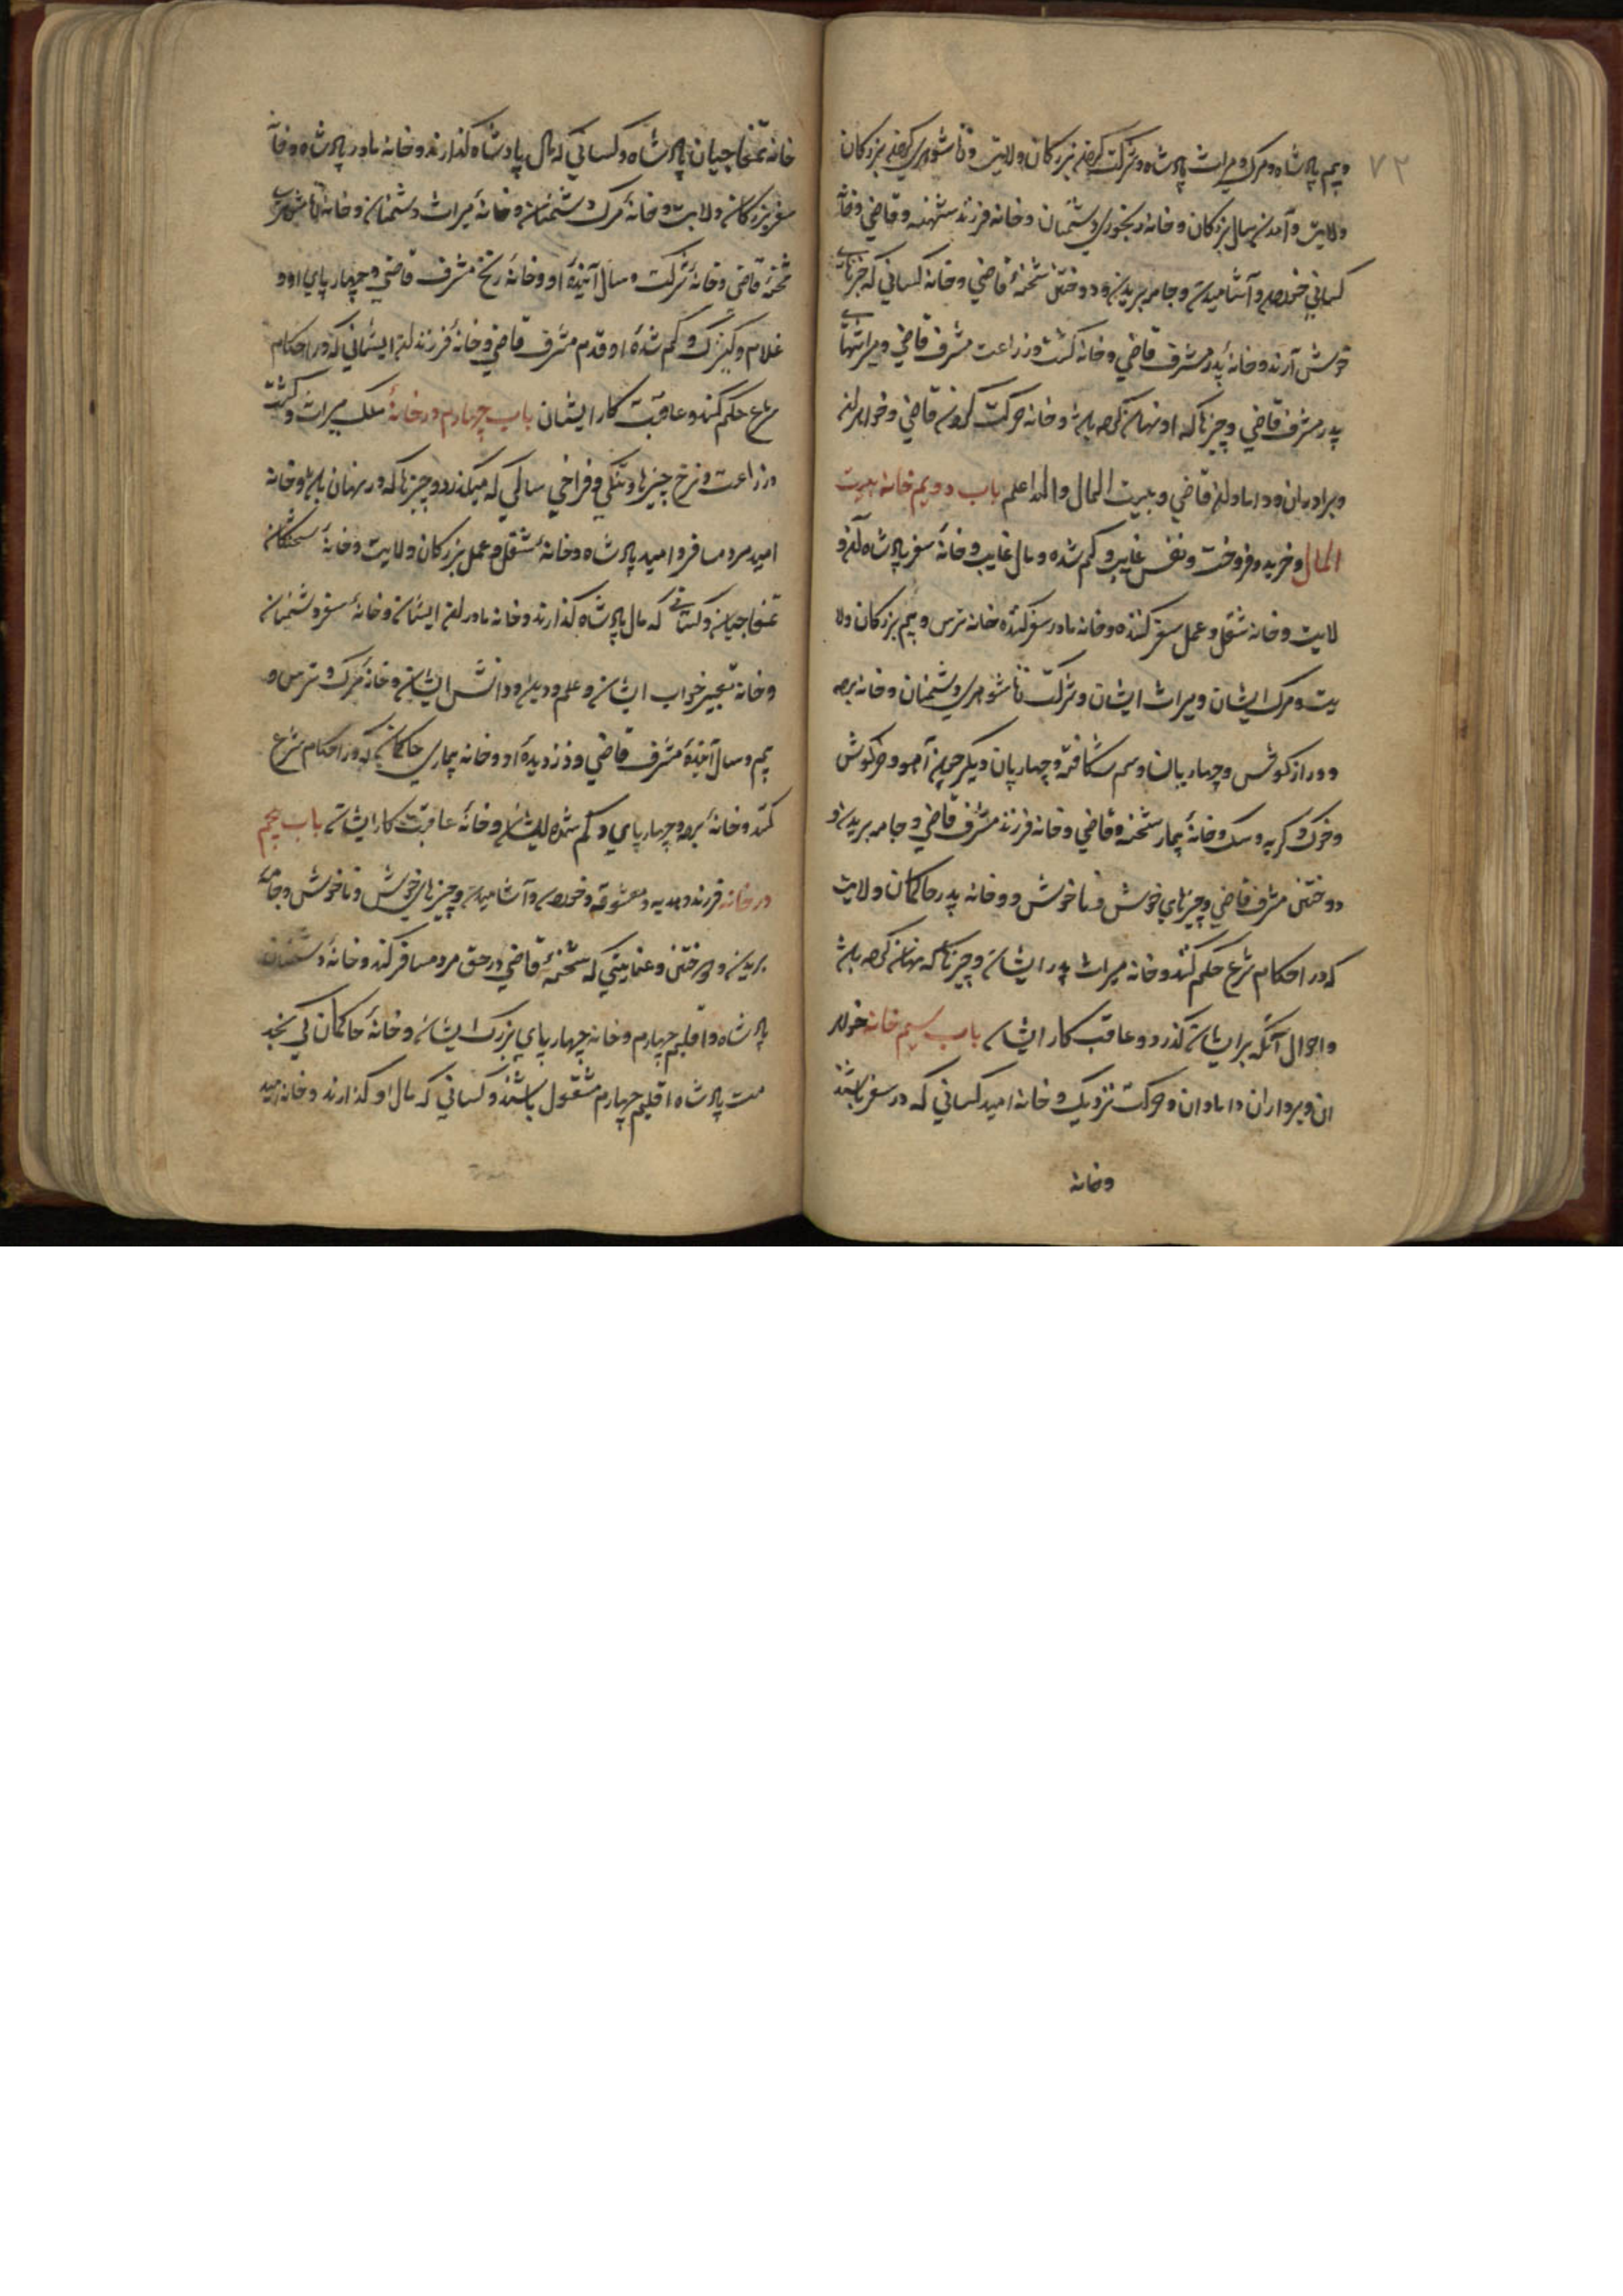 ۷۲
وبیم پادشاه ومرک ومیراث پادشاه وشرکت کردن بزرکان ولایت وناشوهری کردن بزرکان
ولایت وآمدن مال بزرکان وخانه رنجوری دشمنان وخانه فرزند شحنه وقاضی وخانه
کسانی خوردن وآشامیدن وجامه بریدن ودوختن شحنهٔ قاضی وخانه کسانی که خبرهای
خوش آرند وخانهٔ پدر مشرف قاضی وخانه کشت وزراعت مشرف قاضی ومیراثهای
پدر مشرف قاضی وچیزها که او نهان کرده باشد وخانه حرکت کردن قاضی وخواهران
وبرادران ودامادان قاضی وبیت المال والله اعلم باب دوویم خانه بیت
المال وخرید وفروخت ونفس غایب وکم شده ومال غایب وخانهٔ سفر پادشاه
لایت وخانه شغل وعمل سفر کننده وخانه مادر سفر کننده خانه ترس وبیم بزرکان ولا
یت ومرک ایشان ومیراث ایشان وشرکت ناشوهری دشمنان وخانه برده
ودراز کوش وچهارپایان وسم شکافته وچهارپایان دیکر چون آهو وخرکوش
وخوک وکربه وسک وخانهٔ بیمار شحنه وقاضی وخانه فرزند مشرف قاضی وجامه بریدن و
دوختن مشرف قاضی وچیزهای خوش وناخوش ووخانه پدر حاکمان ولایت
که در احکام شرع حکم کنند وخانه میراث پدر ایشان وچیزها که نهان کرده باشد
واحوال آنکه بر ایشان کذرد وعاقبت کار ایشان باب سیم خانه خواهر
ان وبرداران دامادان وحرکت نزدیک وخانه امید کسانی که در سفر باشند
وخانه
خانه تمغاجیان پادشاه وکسانی که مال پادشاه کذارند وخانه مادر پادشاه وخانهٔ
سفر بزرکان ولایت وخانهٔ مرک دشمنان وخانهٔ میراث دشمنان وخانهٔ ناشوهری
شحنهٔ قاضی وخانهٔ شرکت وسال آیندهٔ او وخانهٔ رنج مشرف قاضی وچهارپای او و
غلام وکنیزک وکم شدهٔ او وقدم مشرف قاضی وخانهٔ فرزندان ایشانی که در احکام
شرع حکم کنند وعاقبت کار ایشان باب چهارم در خانهٔ ملک میراث وکشت
وزراعت ونرخ چیزها وتنکی وفراخی سالی که میکذرد وچیزها که در نهان باشد وخانه
امید مرد مسافر وامید پادشاه وخانهٔ شغل وعمل بزرکان ولایت وخانهٔ
تمغاجیان وکسانی که مال پادشاه کذارند وخانه مادران ایشان وخانهٔ سفر دشمنان
وخانه تعبیر خواب ایشان وعلم ودین ودانش ایشان وخانهٔ مرک وترس و
بیم وسال آیندهٔ مشرف قاضی ودزدیدهٔ او وخانه بیماری حاکمانی که در احکام شرع
کنند وخانهٔ برده وچهارپای وکم شدهٔ ایشان وخانهٔ عاقبت کار ایشان باب پنجم
در خانه فرزند وهدیه ومعشوقه وخوردن وآشامیدن وچیزهای خوش وناخوش وجامهٔ
بریدن ودوختن وعنایتی که شحنهٔ قاضی در حق مرد مسافر کند وخانهٔ دشمنان
پادشاه واقلیم چهارم وخانه چهارپای بزرک ایشان وخانهٔ حاکمان کی بخد
مت پادشاه اقلیم چهارم مشغول باشند وکسانی که مال او کذارند وخانه امید